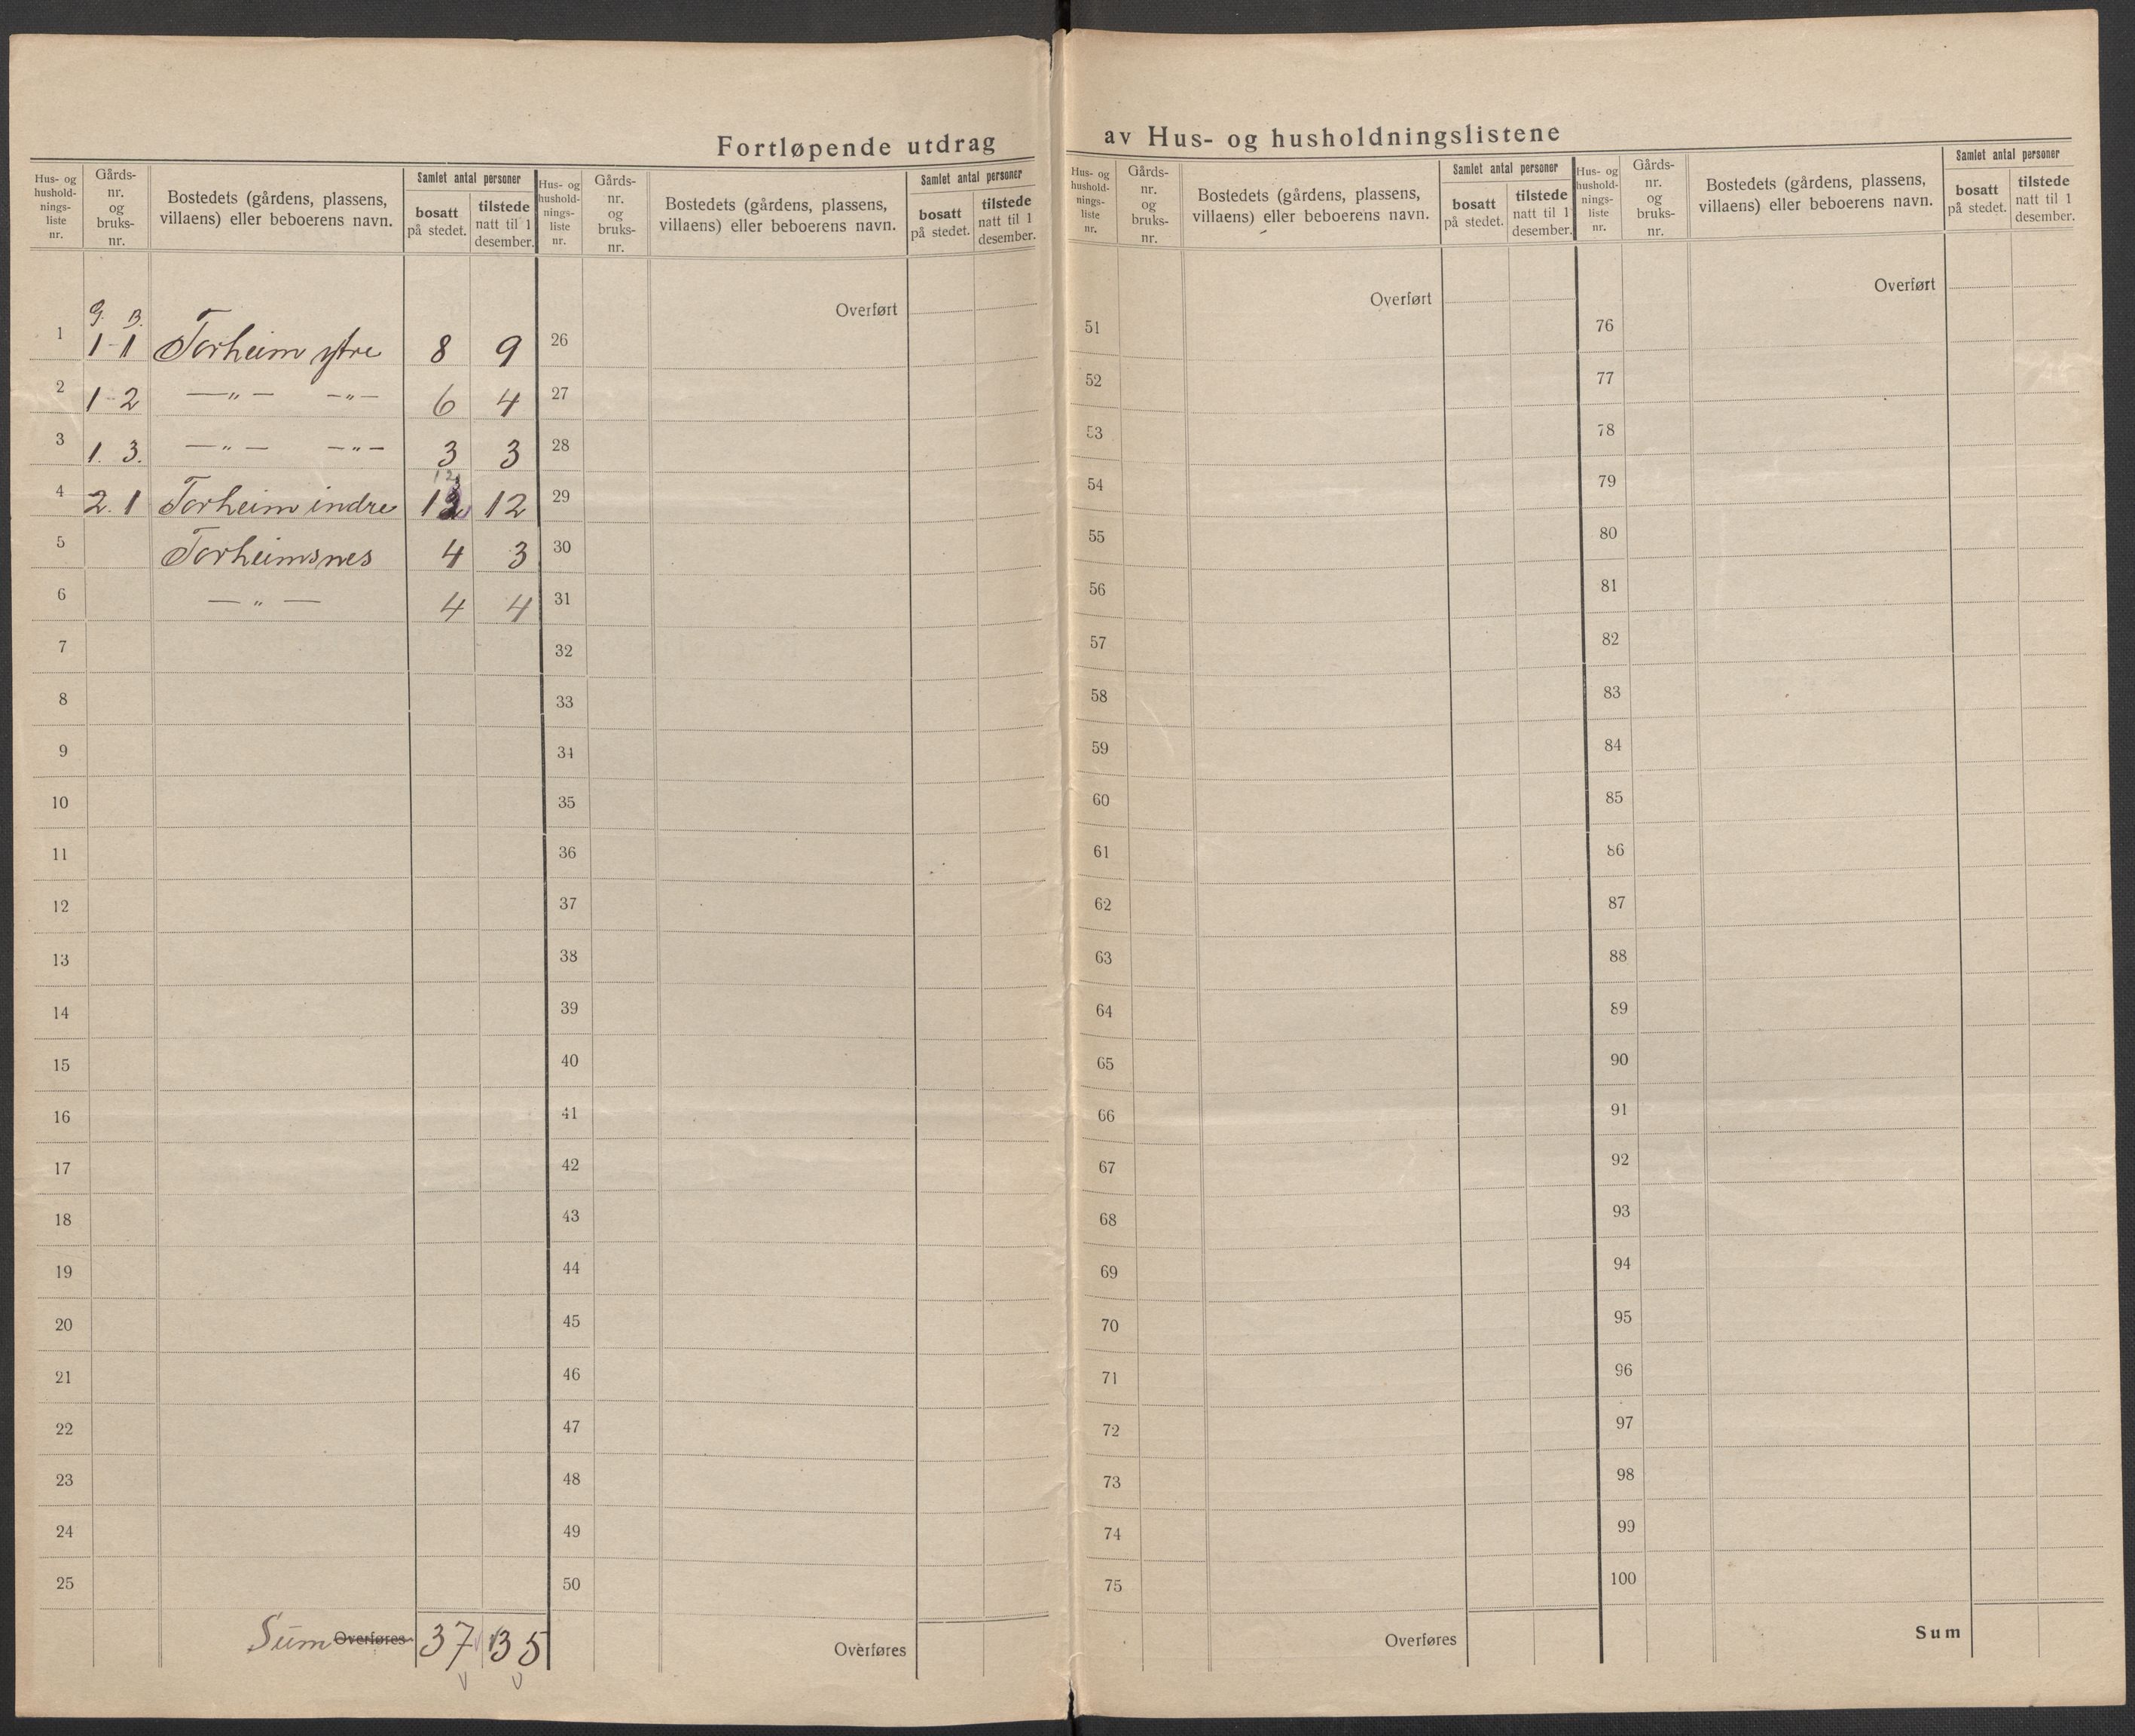 Fortløpende utdrag av Hus- og husholdningslistene
Hus- og hushold-nings-liste nr.
Gårds-nr. og bruks-nr.
Bostedets (gårdens, plassens, villaens) eller beboerens navn.
Samlet antal personer
bosatt på stedet.
tilstede natt til 1 desember.
G. B.
1 1-1 Torheim ytre 8 9
2 1-2 —"— —"— 6 4
3 1. 3. —"— —"— 3 3
12
4 2. 1 Torheim indre 12
5 Torheimsnes 4 3
6 —"— 4 4
7
8
9
10
11
12
13
14
15
16
17
18
19
20
21
22
23
24
25
Sum Overføres 37 35
Hus- og hushold-nings-liste nr.
Gårds-nr. og bruks-nr.
Bostedets (gårdens, plassens, villaens) eller beboerens navn.
Samlet antal personer
bosatt på stedet.
tilstede natt til 1 desember.
Overført
26
27
28
29
30
31
32
33
34
35
36
37
38
39
40
41
42
43
44
45
46
47
48
49
50
Overføres
Hus- og hushold-nings-liste nr.
Gårds-nr. og bruks-nr.
Bostedets (gårdens, plassens, villaens) eller beboerens navn.
Samlet antal personer
bosatt på stedet.
tilstede natt til 1 desember.
Overført
51
52
53
54
55
56
57
58
59
60
61
62
63
64
65
66
67
68
69
70
71
72
73
74
75
Overføres
Hus- og hushold-nings-liste nr.
Gårds-nr. og bruks-nr.
Bostedets (gårdens, plassens, villaens) eller beboerens navn.
Samlet antal personer
bosatt på stedet.
tilstede natt til 1 desember.
Overført
76
77
78
79
80
81
82
83
84
85
86
87
88
89
90
91
92
93
94
95
96
97
98
99
100
Sum